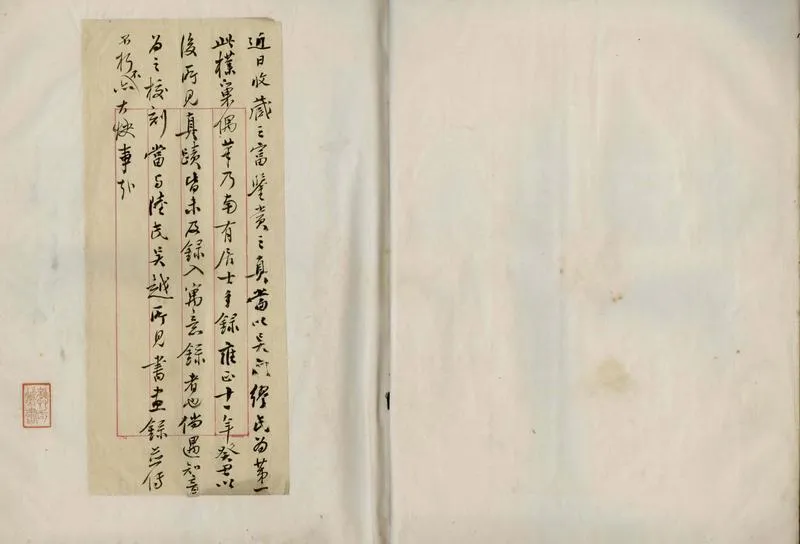 近日收藏之富鑒賞之真當以吳門繆氏為第一
此樸巢偶筆乃南有居士手錄雍正十一年癸丑以
後所見真蹟皆未及錄入寓意錄者也倘遇知音
為之校刻當與陸氏吳越所見書畫錄並傳
不朽不亦大快事邪